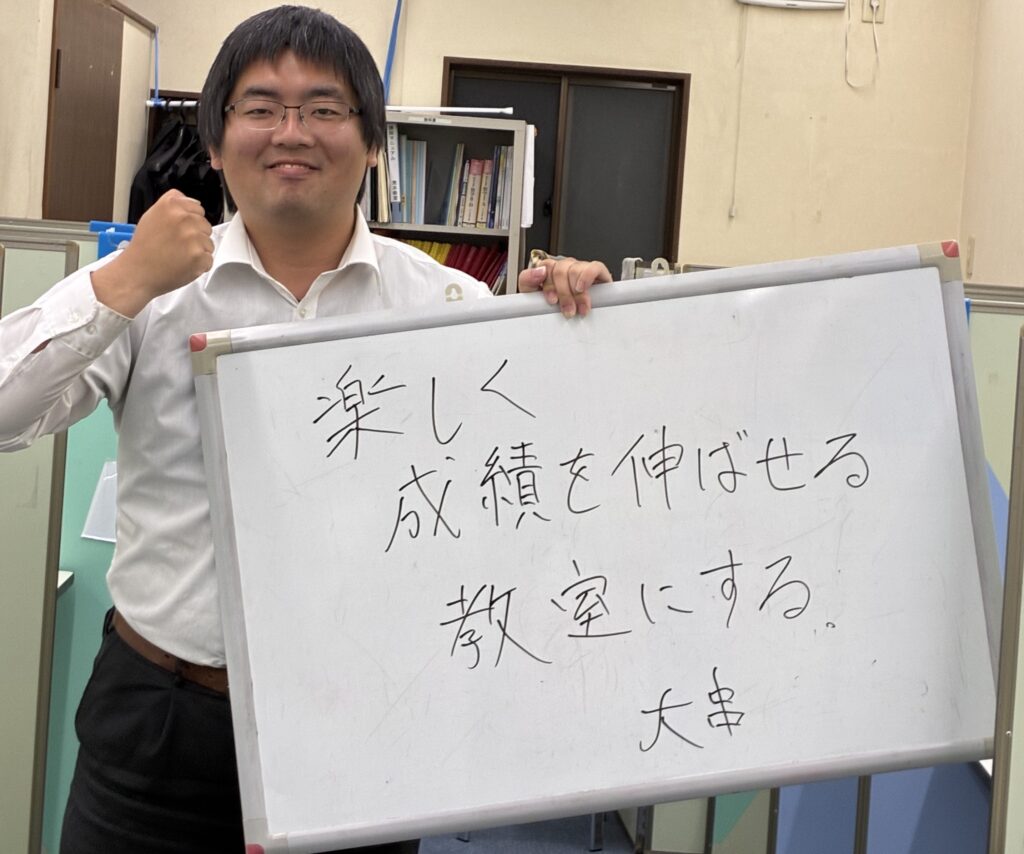 楽しく
成績を伸ばせる
教室にする。
大串